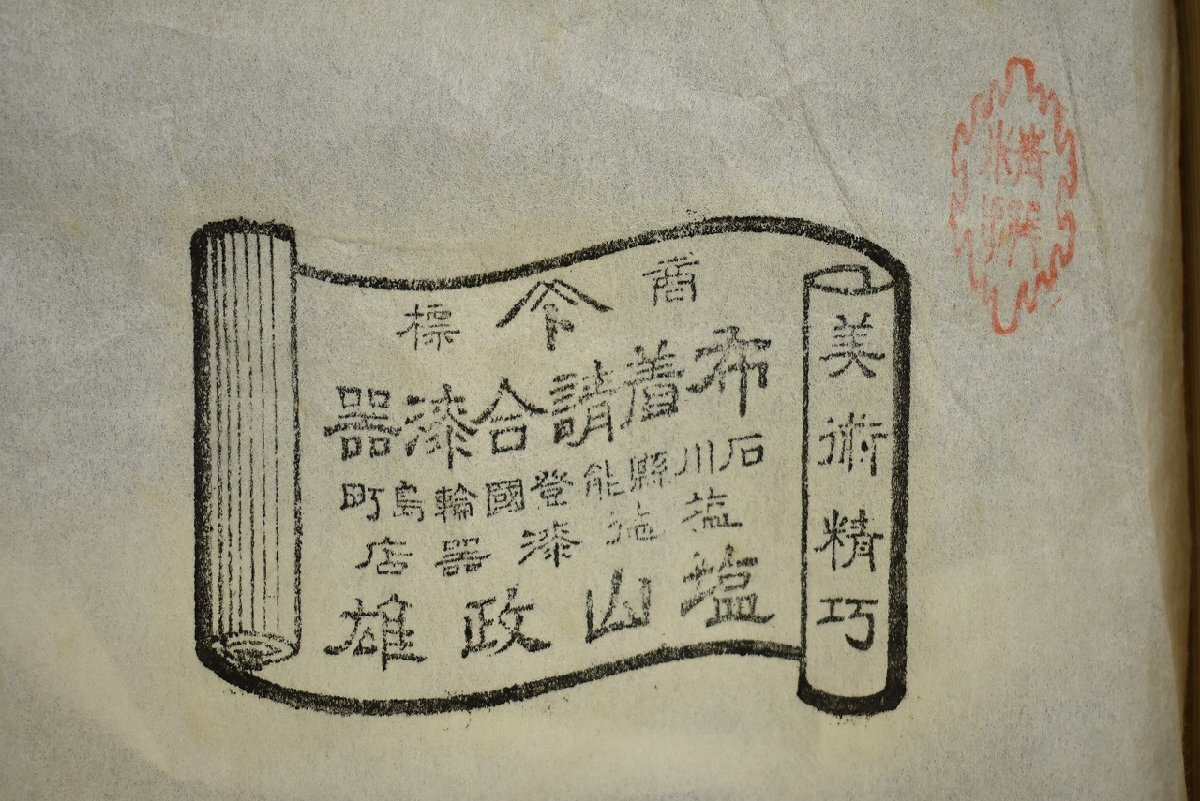 美術精巧
商標
布着請合漆器
石川縣能登國輪島町
塩漆器店
塩山政雄